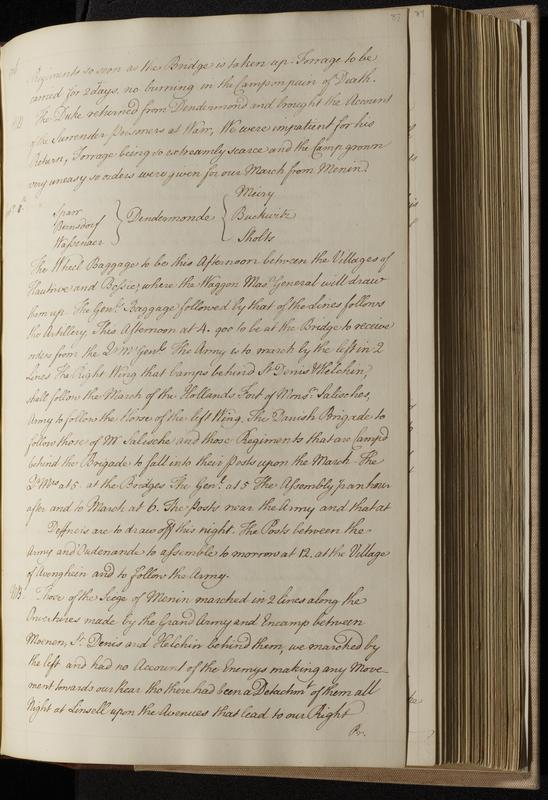 87
Regiments so soon as the Bridge is taken up. Forrage to be
carried for 2 days. no burning in the Camp on pain of Death.
NB The Duke returned from Dendermond and brought the Account
of the Surrender prisoners at Warr, We were impatient for his
Return, Forrage being so extreamly scarce and the Camp grown
very uneasy so orders were given for our March from Menin.
Sparr
Bernsdorf
Wassenaer
Dendermonde
Meiry
Buckwitz
Sholts
The Wheel Baggage to be this Afternoon between the Villages of
Hautrive and Bossie, where the Waggon Mas.r General will draw
them up. The Gen.ls Baggage followed by that of the Lines follows
the Artillery. This Afternoon at 4. 900 to be at the Bridge to receive
orders from the Q.r M.r Gen.l The Army is to march by the left in 2
Lines. The Right Wing that camps behind St Denis & Helchin,
shall follow the March of the Hollands Foot of Mons.r Salisches,
Army to follow the Horse of the left Wing. The Danish Brigade to
follow those of Mr Salische and those Regiments that are Camp'd
behind the Brigade to fall into their posts upon the March. The
Q.r Mrs at 5. at the Bridges The Gen.l at 5 The Assembly an hour
after and to March at 6. The Posts near the Army and that at
Deffneis are to draw off this night. The Posts between the
Army and Oudenande to assemble to morrow at 12. at the Village
of Avenghein and to follow the Army.
NB. Those of the Siege of Menin marched in 2 lines along the
Overtures made by the Grand Army and Encamp between
Moenen, St. Denis and Helchin behind them, we marched by
the left and had no Account of the Enemys making any Move-
ment towards our Rear tho there had been a Detachmt of them all
Night at Linsell upon the Avenues that lead to our Right